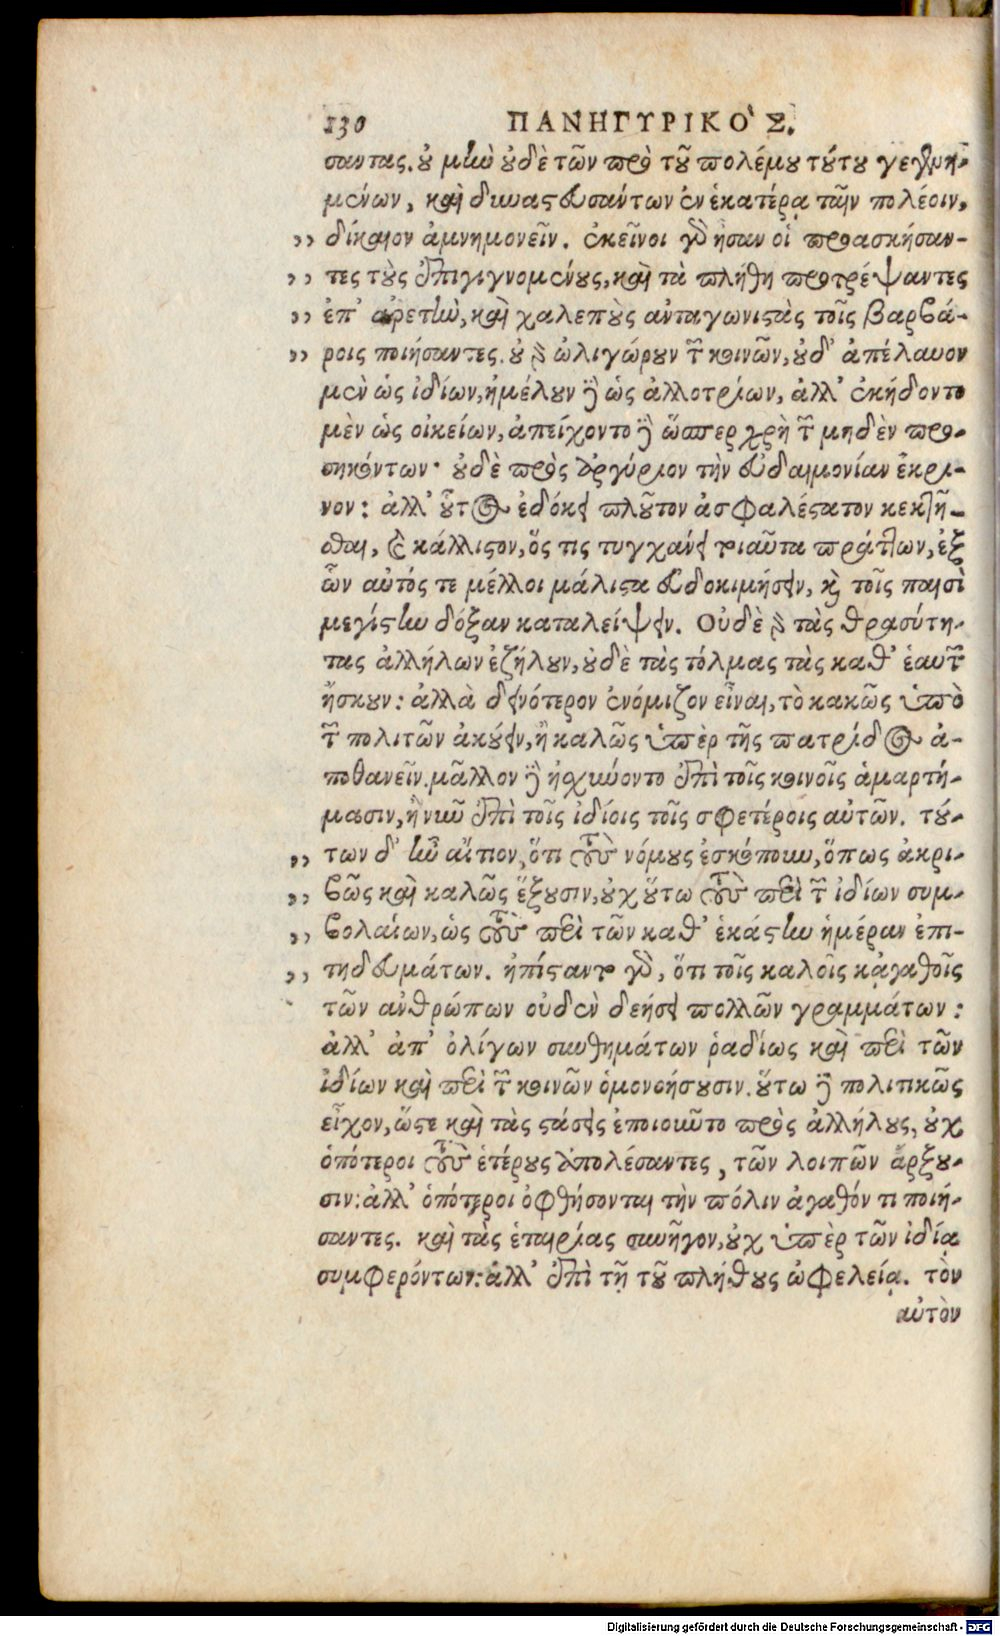 130 ΠΑΝΗΓΥΡΙΚΟ῀Σ.
σαντας. οὐ μὴν οὐδὲ τῶν πρὸ τοῦ πολέμου τούτου γενομέ-
νων, καὶ δυναστευσάντων ἐν ἑκατέρᾳ ταῖν πολέοιν,
,, δίκαιον ἀμνημονεῖν. ἐκεῖνοι γὰρ ἦσαν οἱ προασκήσαν-
,, τες τοὺς ἐπιγιγνομένους, καὶ τὰ πλήθη προτρέψαντες
,, ἐπ’ ἀρετὴν, καὶ χαλεποὺς ἀνταγωνιστὰς τοῖς βαρβά-
,, ροις ποιήσαντες. οὐ γὰρ ὠλιγώρουν τῶν κοινῶν, οὐδ’ ἀπέλαυον
μὲν ὡς ἰδίων, ἠμέλουν δὲ ὡς ἀλλοτρίων, ἀλλ’ ἐκήδοντο
μὲν ὡς οἰκείων, ἀπείχοντο δὲ ὥσπερ χρὴ τῶν μηδὲν προ-
σηκόντων· οὐδὲ πρὸς ἀργύριον τὴν εὐδαιμονίαν ἔκρι-
νον: ἀλλ’ οὗτος ἐδόκει πλοῦτον ἀσφαλέστατον κεκτῆ-
σθαι, καὶ κάλλιστον, ὅς τις τυγχάνει τοιαῦτα πράττων, ἐξ
ὧν αὐτός τε μέλλοι μάλιστα εὐδοκιμήσειν, καὶ τοῖς παισὶ
μεγίστην δόξαν καταλείψειν. Οὐδὲ γὰρ τὰς θρασύτη-
τας ἀλλήλων ἐζήλουν, οὐδὲ τὰς τόλμας τὰς καθ’ ἑαυτῶν
ἤσκουν: ἀλλὰ δεινότερον ἐνόμιζον εἶναι, τὸ κακῶς ὑπὸ
τῶν πολιτῶν ἀκούειν, ἢ καλῶς ὑπὲρ τῆς πατρίδος ἀ-
ποθανεῖν. μᾶλλον δὲ ᾐσχύνοντο ἐπὶ τοῖς κοινοῖς ἁμαρτή-
μασιν, ἢ νῦν ἐπὶ τοῖς ἰδίοις τοῖς σφετέροις αὐτῶν. τού-
,, των δ’ ἦν αἴτιον, ὅτι τοὺς νόμους ἐσκόπουν, ὅπως ἀκρι-
,, βῶς καὶ καλῶς ἕξουσιν, οὐχ οὕτω τοὺς περὶ τῶν ἰδίων συμ-
,, βολαίων, ὡς τοὺς περὶ τῶν καθ’ ἑκάστην ἡμέραν ἐπι-
,, τηδευμάτων. ἠπίσταντο γὰρ, ὅτι τοῖς καλοῖς κἀγαθοῖς
τῶν ἀνθρώπων οὐδὲν δεήσει πολλῶν γραμμάτων:
ἀλλ’ ἀπ’ ὀλίγων συνθημάτων ῥαδίως καὶ περὶ τῶν
ἰδίων καὶ περὶ τῶν κοινῶν ὁμονοήσουσιν. οὕτω δὲ πολιτικῶς
εἶχον, ὥστε καὶ τὰς στάσεις ἐποιοῦντο πρὸς ἀλλήλους, οὐχ
ὁπότεροι τοὺς ἑτέρους ἀπολέσαντες, τῶν λοιπῶν ἄρξου-
σιν: ἀλλ’ ὁπότεροι ὀφθήσονται τὴν πόλιν ἀγαθόν τι ποιή-
σαντες. καὶ τὰς ἑταιρίας συνῆγον, οὐχ ὑπὲρ τῶν ἰδίᾳ
συμφερόντων: ἀλλ’ ἐπὶ τῇ τοῦ πλήθους ὠφελείᾳ. τὸν
αὐτὸν
Digitalisierung gefördert durch die Deutsche Forschungsgemeinschaft - DFG